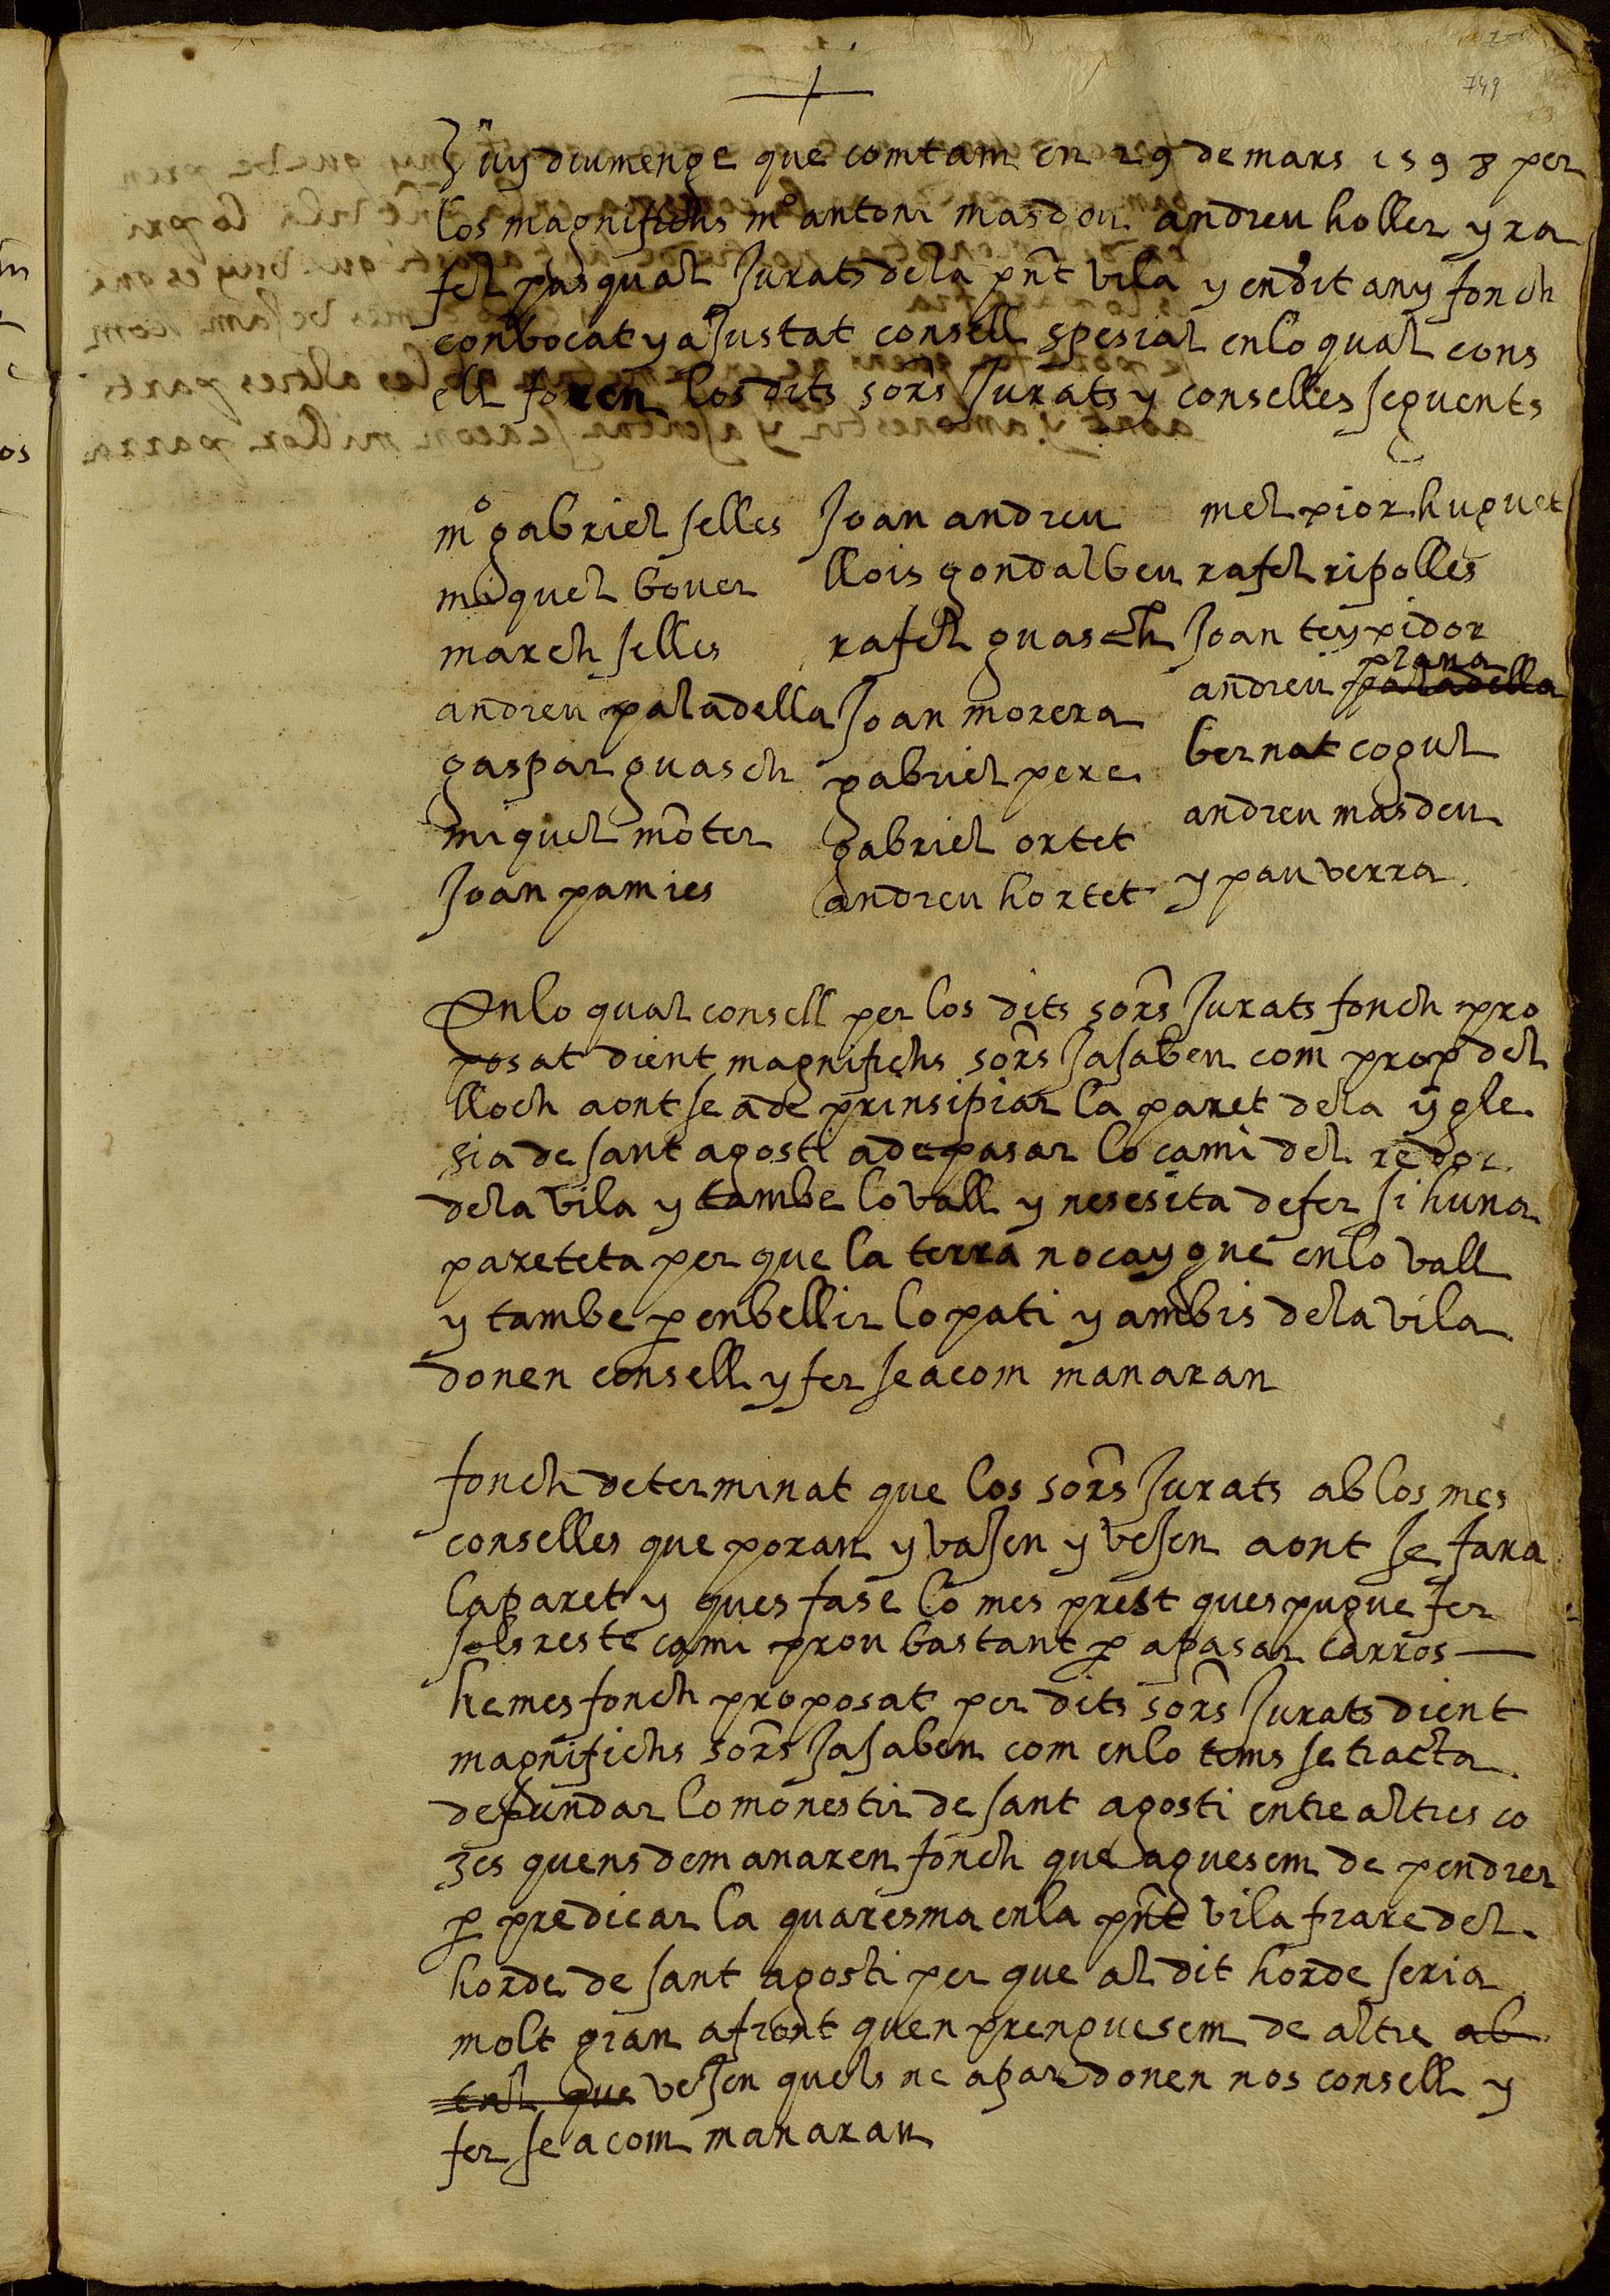 749
Huy diumenge que comtam en 29 de mars 1598 per
los magnifichs mº antoni masdeu andreu holler y ra
fel pasqual Jurats dela pnt vila y en dit any fonch
conbocat y ajustat consell spesial enlo qual cons
ell foren los dits sors Jurats y conselles seguents
mº gabriel selles
miquel bover
march selles
andreu paladella
gaspar guasch
miquel moter
Joan pamies
Joan andreu
llois gondalbeu
rafel guasch
Joan morera
gabriel pere
gabriel ortet
andreu hortet
melpior huguet
rafel ripolles
Joan teypidor
plana
andreu paladella
bernat cogul
andreu masdeu
y pau verra
Enlo qual consell per los dits sors Jurats fonch pro
posat dient magnifichs sors Jasaben com prop del
lloch aont se ade prinsipiar la paret dela ygle
sia de sant agosti adepasar lo cami del redor
dela vila y tambe lo vall y nesesita defer si huna
pareteta per que la terra nocaygue enlo vall
y tambe p enbellir lo pati y ambis dela vila
donen consell y fer seacom manaran
fonch determinat que los sors Jurats ab los mes
conselles que poran y vajen y vejen aont se fara
laparet y ques fase lo mes prest ques pugue fer
sols reste cami prou bastant p apasar carros
hemes fonch proposat per dits sors Jurats dient
magnifichs sors Jasaben com enlo tems se tracta
defundar lo monestir de sant agosti entre altres co
zes quens demanaren fonch que aguesem de pendrer
p predicar la quaresma enla pnt vila frare del
horde de sant agosti per que al dit horde seria
molt gran afront quen prenguesem de altre ab
enl que vejen quels ne apar donen nos consell y
fer se acom manaran